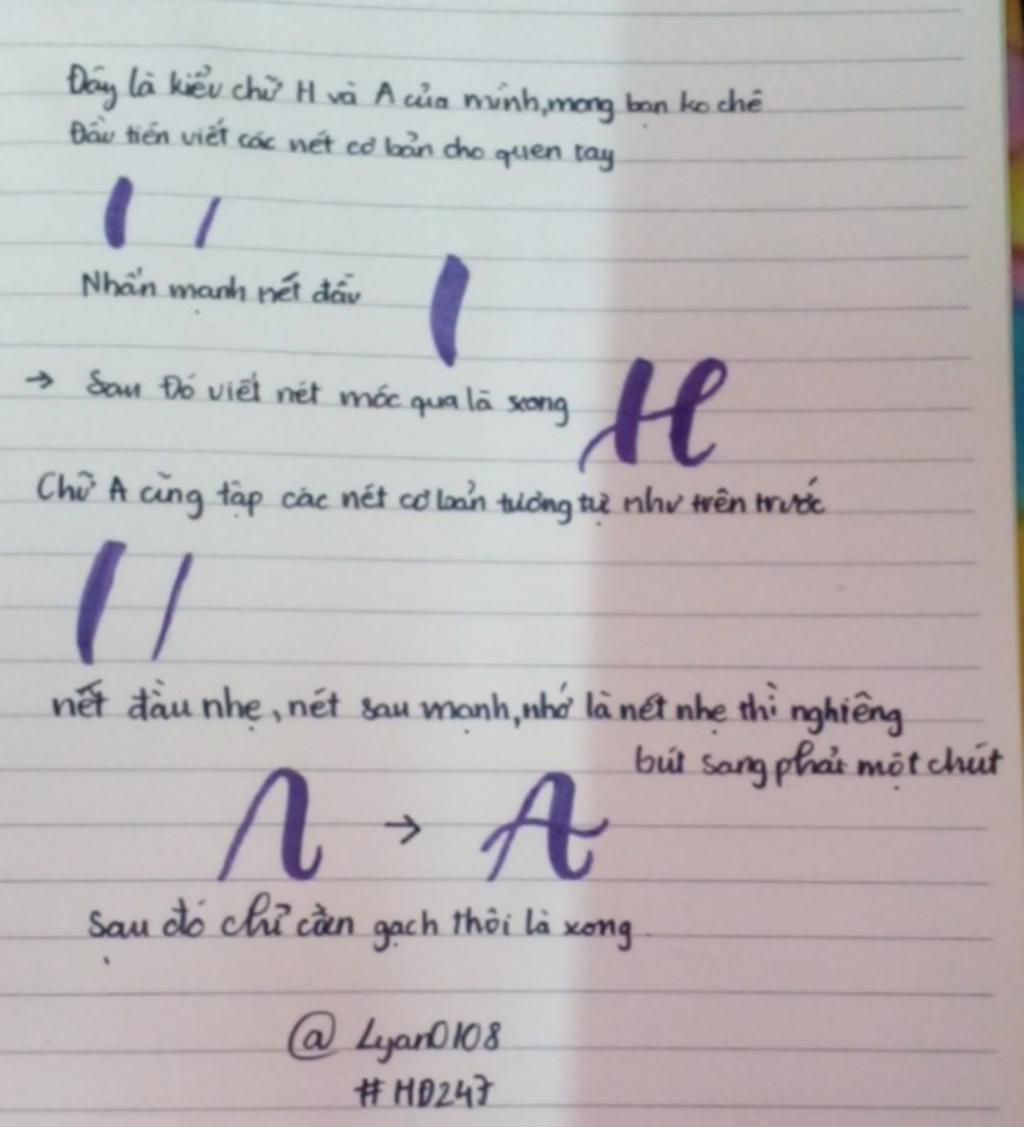 Đây là kiểu chữ H và A của mình, mong bạn ko chê
Đầu tiên viết các nét cơ bản cho quen tay
Nhấn mạnh nét đầu
→ Sau Đó viết nét móc qua là xong H
Chữ A cũng tập các nét cơ bản tương tự như trên trước
nét đầu nhẹ, nét sau mạnh, nhớ là nét nhẹ thì nghiêng
bút sang phải một chút
Λ → A
Sau đó chỉ cần gạch thôi là xong
@ Lyan0108
#HD247